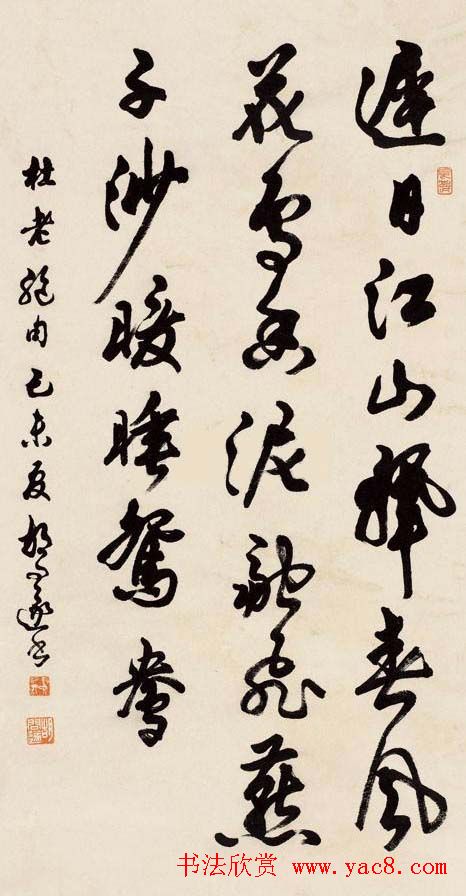 遲日江山麗春風
花香泥融飛燕
子沙暖睡鴛鴦
杜老絕句己未夏胡問遂書
书法欣赏 www.yac8.com